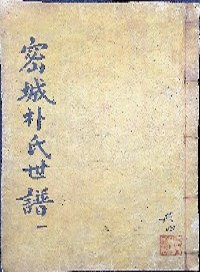 密城朴氏世譜 一